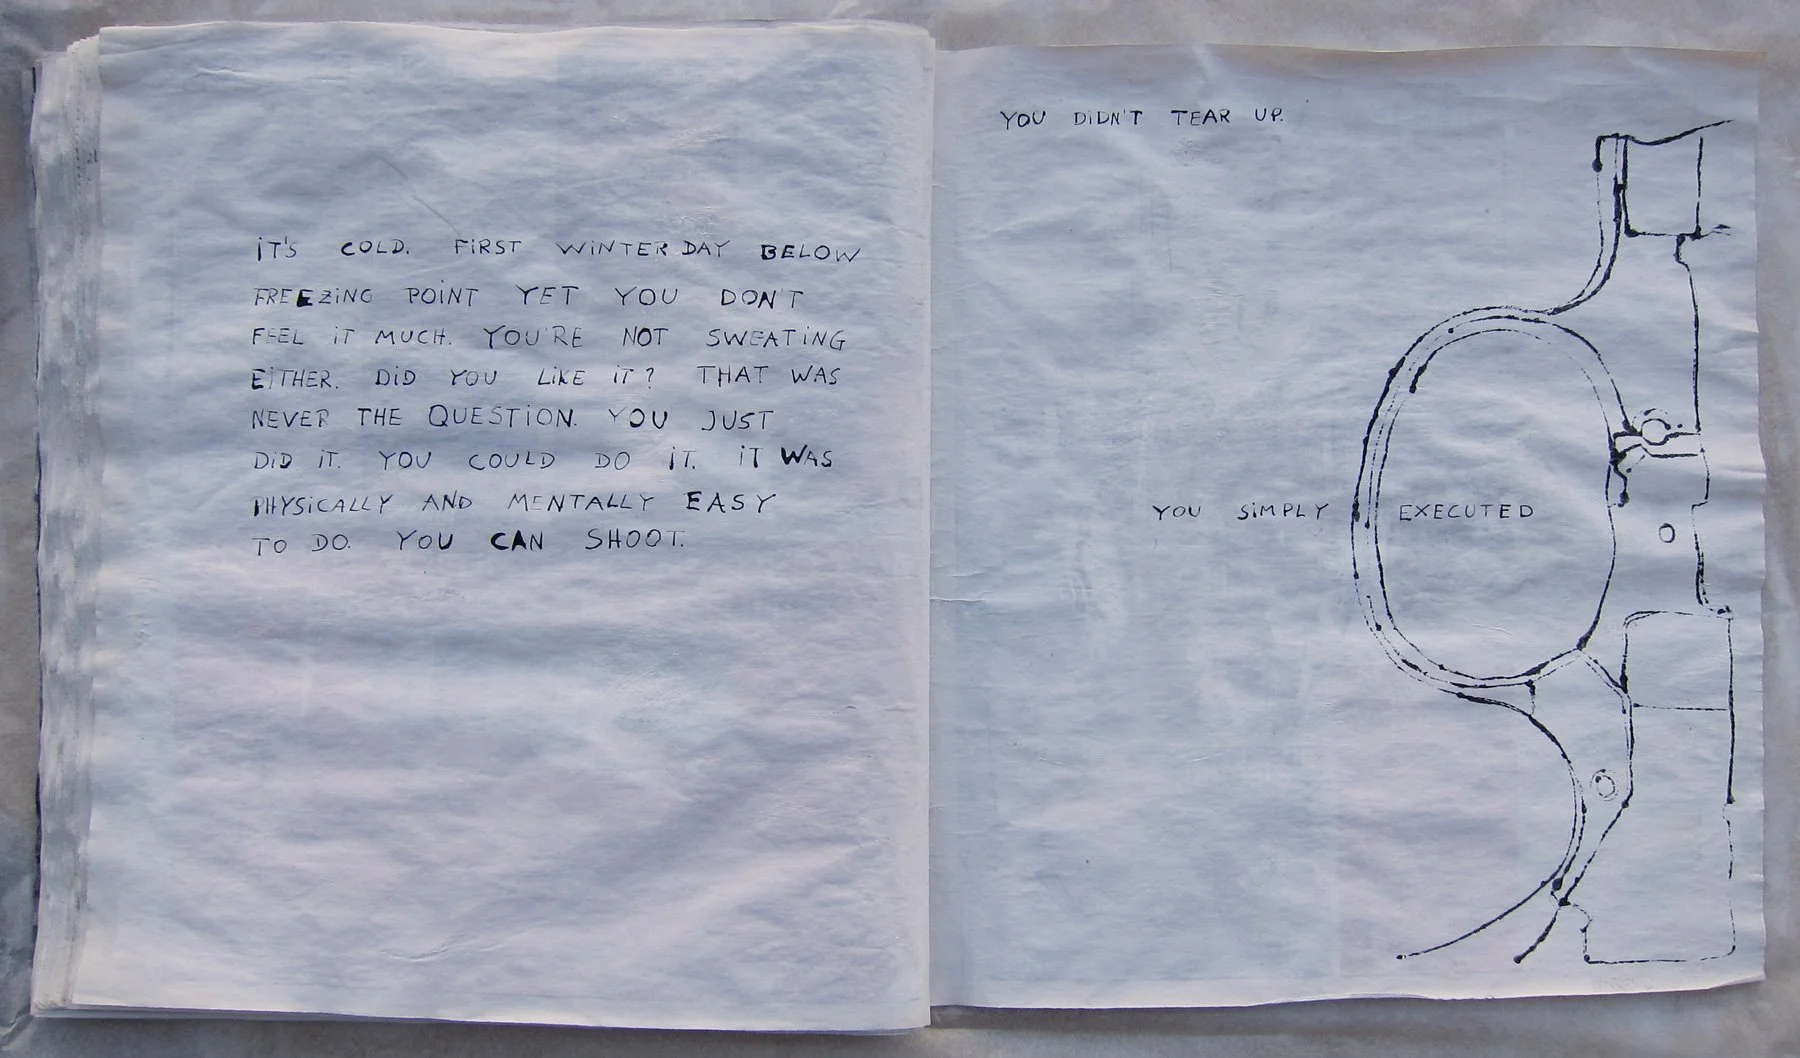 iT'S COLD. FiRST WiNTER DAY BELOW
FREEZiNG POiNT YET YOU DON'T
FEEL iT MUCH. YOU'RE NOT SWEATiNG
EiTHER. DiD YOU LiKE iT? THAT WAS
NEVER THE QUESTiON. YOU JUST
DiD iT. YOU COULD DO iT. iT WAS
PHYSiCALLY AND MENTALLY EASY
TO DO. YOU CAN SHOOT.
YOU DiDN'T TEAR UP.
YOU SiMPLY EXECUTED